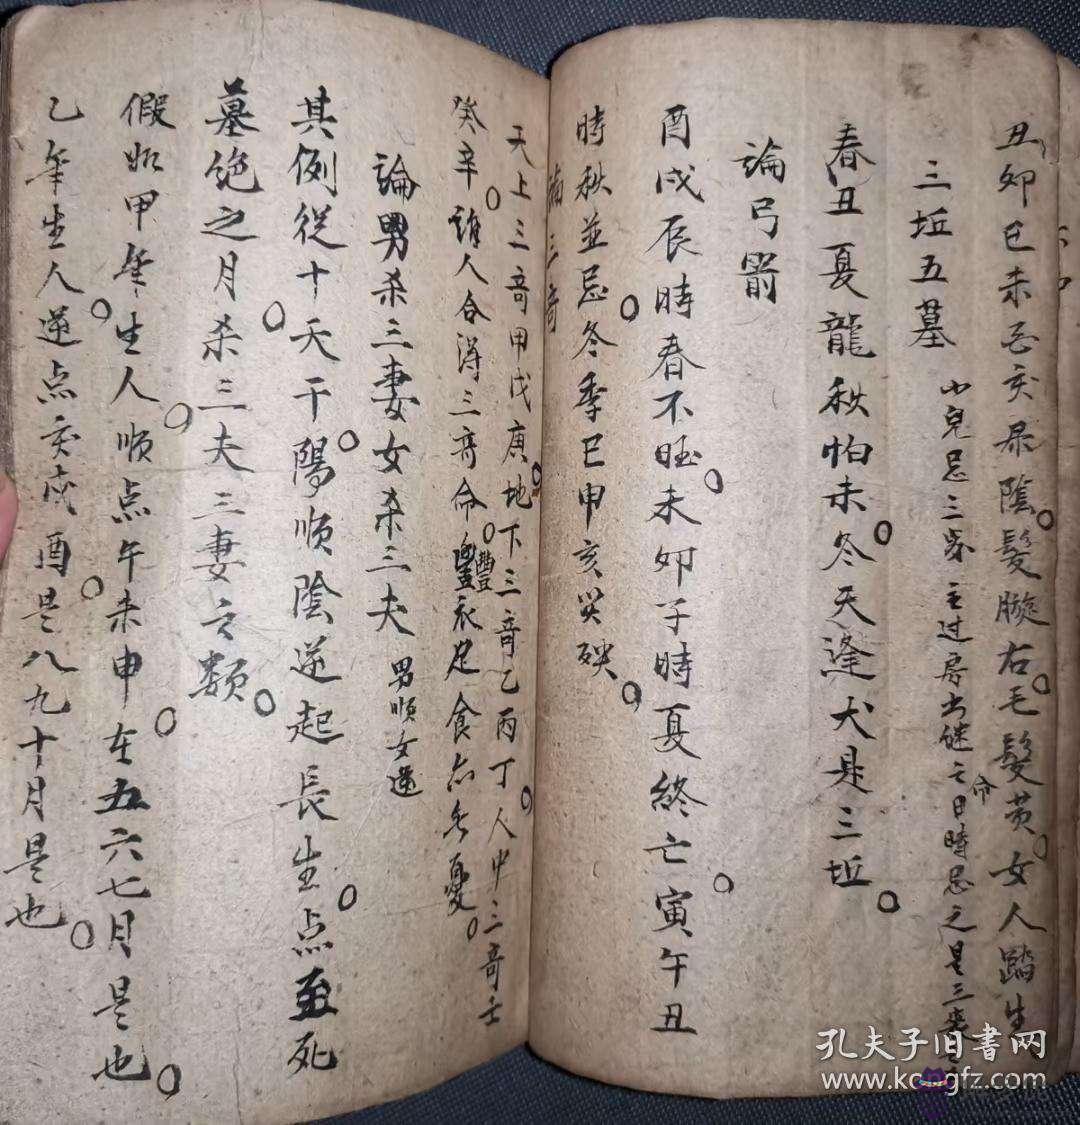 丑卯巳未酉亥屬陰髮腚右毛髮黄女人踏生
三坵五墓
小兒忌三岁主过房出继之命日時忌之是三
春丑夏龍秋怕未冬天逢犬是三坵
論弓箭
酉戌辰時春不旺未卯子時夏终亡寅午丑
時秋並忌冬季巳申亥哭殃
論三奇
天上三奇甲戊庚地下三奇乙丙丁人中三奇壬
癸辛詺人合浔三奇命豐衣足食亦無憂
論男杀三妻女杀三夫 男順女逆
其例從十天干陽順陰逆起長生点至死
墓绝之月杀三夫三妻之類
假如甲年生人順点午未申在五六七月是也
乙年生人逆点亥戍酉是八九十月是也
孔夫子旧書网
www.kongfz.com